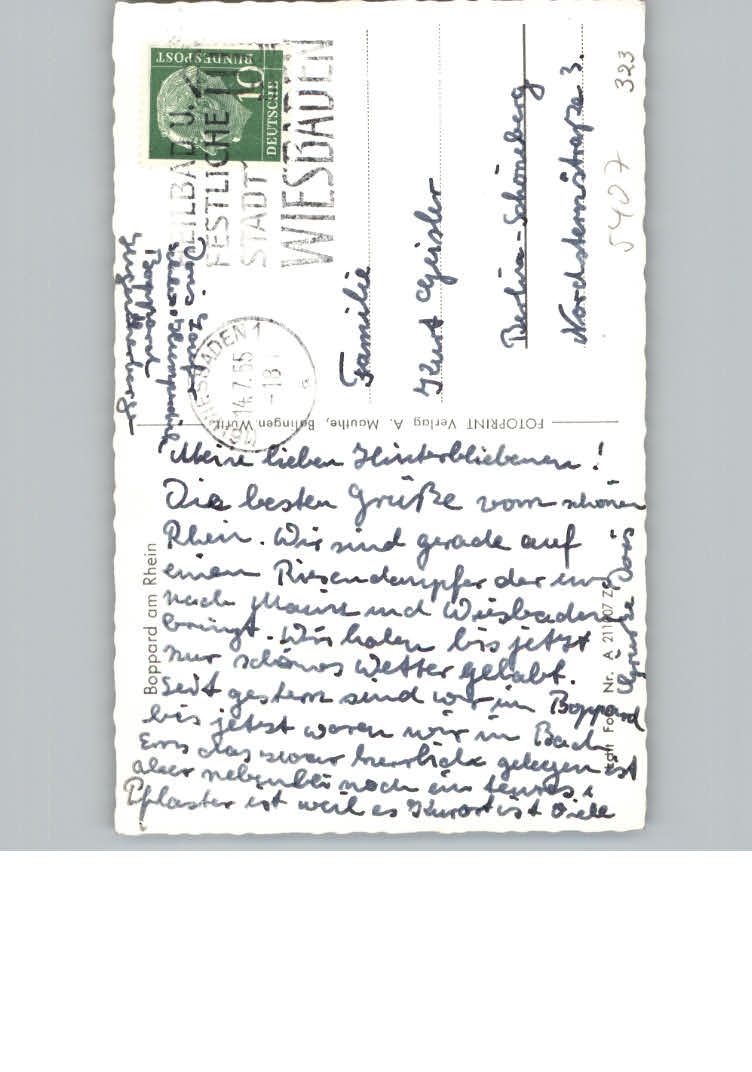 BUNDESPOST
10
DEUTSCHE
HEILBAD U.
FESTLICHE
STADT
WIESBADEN
WIESBADEN 1
14.7.55
-18
a
(16)
Doris
Boppard
Jugendherberge
Familie
Kurt Geisler
Berlin-Schöneberg
Nordsternstraße 3.
5407
323
FOTOPRINT Verlag A. Mauthe, Balingen Württ.
Boppard am Rhein
Meine lieben Hinterbliebenen!
Die besten Grüße vom schönen
Rhein. Wir sind gerade auf
einem Riesendampfer der uns
nach Mainz und Wiesbaden
bringt. Wir haben bis jetzt
nur schönes Wetter gehabt.
Seit gestern sind wir in Boppard
bis jetzt waren wir in Bad
Ems das zwar herrlich gelegen ist
aber nebenbei noch ein teures
Pflaster ist weil es Kurort ist Viele
Grüße Doris
Foto Nr. A 211107 Z